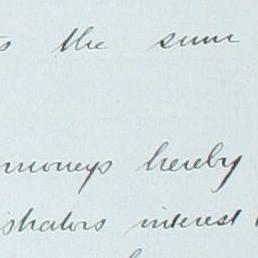 the sum
moneys hereby
istrators interest